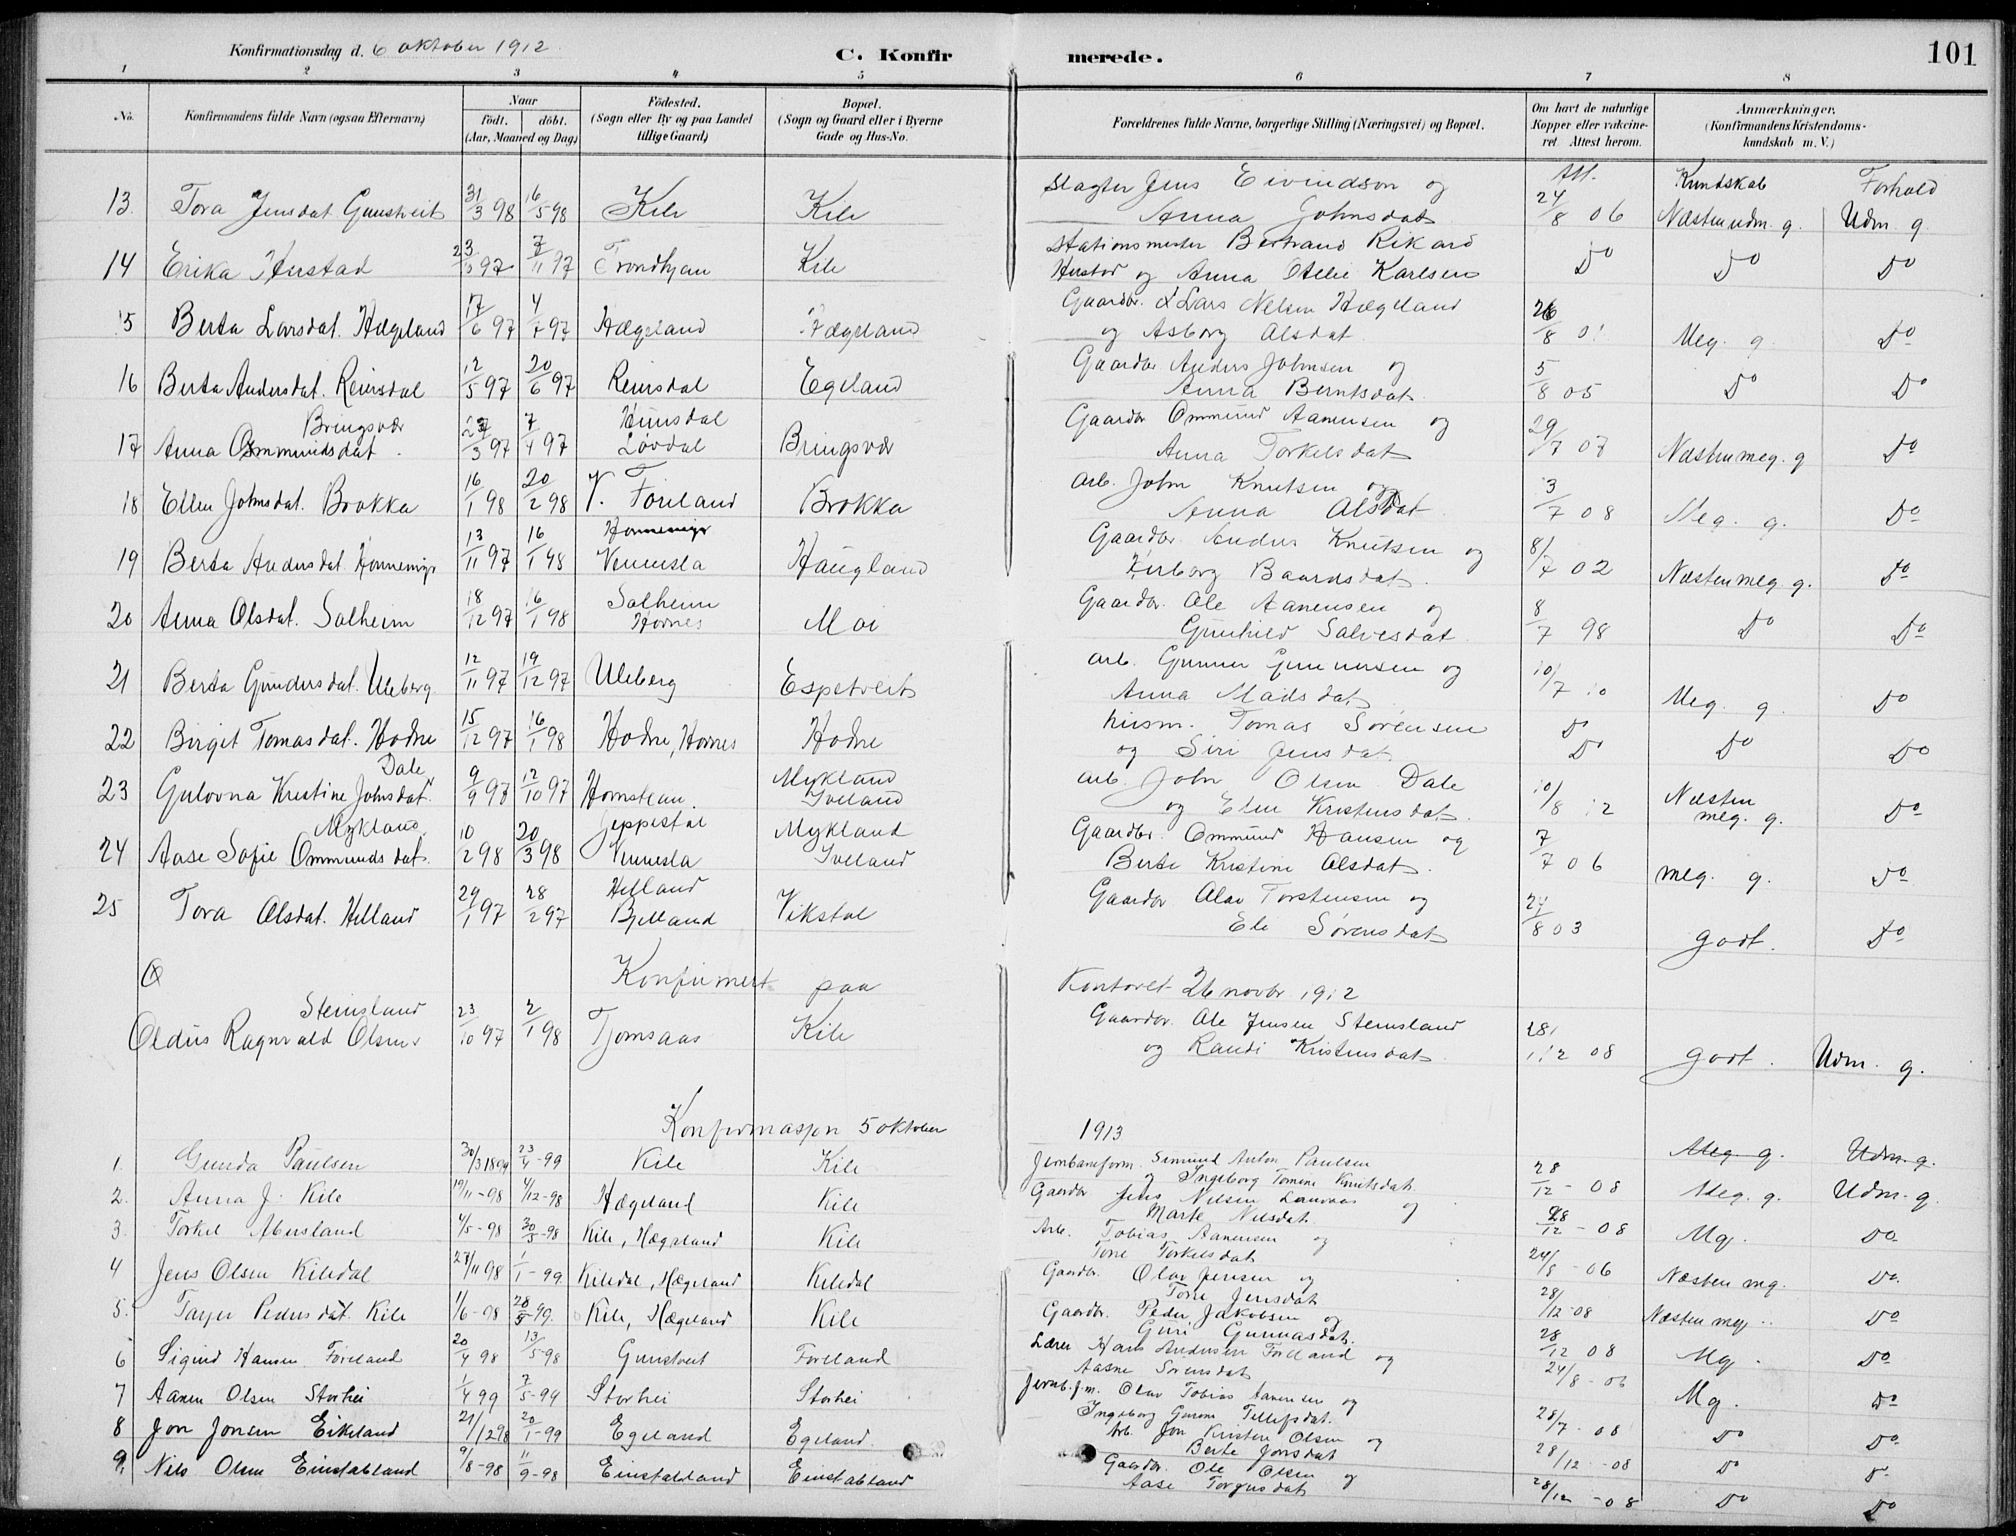 Konfirmationsdag d. 6 oktober 1912.
C. Konfirmerede.
101
1 2 3 4 5 6 7 8
No.
Konfirmandens fulde Navn (ogsaa Efternavn)
Naar
födt. döbt.
(Aar, Maaned og Dag)
Födested.
(Sogn eller By og paa Landet
tillige Gaard)
Bopæl.
(Sogn og Gaard eller i Byerne
Gade og Hus-No.
Forældrenes fulde Navne, borgerlige Stilling (Næringsvei) og Bopæl.
Om havt de naturlige
Kopper eller vakcine-
ret Attest herom.
Anmærkninger.
(Konfirmandens Kristendoms-
kundskab m. V.)
Att. Kundskab Forhold
13. Tora Jensdat. 31/3 98 16/5 98 Kile Kile Slagter Jens Eivindson og
Anna Johnsdat 24/8 06 Næsten udm. g. Udm. g
14 Erika Hustad 97 7/11 97 Trondhjem Kile Stationsmester Bertrand Rikard
Hustad og Anna Otelie Karlsen Do Do Do
15 Berta Larsdat. Hægeland 17/6 97 4/7 97 Hægeland Hægeland Gaardbr. Lars Nelsen Hægeland
og Asborg Olsdat. 26/8 01 Meg. g. Do
16 Berta Andersdat. Reiersdal 12/5 97 20/6 97 Reiersdal Egeland Gaardbr Anders Johnsen og
Anna Berntsdat. 5/8 05 Do Do
Bringsvær
17 Anna Ommundsdat. 97 7/4 97 Løvdal Bringsvær Gaardbr Ommund Aanensen og
Anna Torkelsdat 29/7 07 Næsten meg. g Do
18 Ellen Johnsdat. Brokka 16/1 98 20/2 98 V. Føreland Brokka Arb. John Knutsen og
Anna Olsdat. 3/7 08 Meg. g. Do
19 Berta Andersdat 13/11 97 16/1 98 Vennesla Haugland Gaardbr. Anders Knutsen og
Baardsdat. 8/7 02 Næsten meg. g. Do
20 Anna Olsdat. Solheim 18/12 97 16/1 98 Solheim
Hornes Moi Gaardbr. Ole Aanensen og
Gunhild Salvesdat. 8/7 98 Do Do
21 Berta Gundersdat. Uleberg 12/11 97 19/12 97 Uleberg Espetveit Arb. Gunner Gunnersen og
Anna Madsdat 10/7 10 Meg. g. Do
22 Birget Tomasdat. Hodne 15/12 97 16/1 98 Hodne, Hornes Hodne Husm. Tomas Sørensen
og Siri Jensdat Do Do Do
Dale
23 Gulovna Kristine Johnsdat. 9/9 97 12/10 97 Hornsteen. Mykland
Iveland Arb. John Olsen Dale
og Elen Kristensdat. 10/8 12 Næsten
meg. g. Do
Mykland
24 Aase Sofie Ommundsdat. 10/2 98 20/3 98 Jeppestøl
Vennesla Mykland
Iveland Gaardbr. Ommund Hansen og
Berte Kristine Olsdat. 7/7 06 meg. g. Do
25 Tora Olsdat. Helland 29/1 97 28/2 97 Helland
Bjelland Vikstøl Gaardbr Olav Torstensen og
Ele Sørensdat 8 03 godt. Do
Konfirmert paa Kontoret 26 novbr. 1912
Steinsland
Oldus Ragnvald Olsen 23/10 97 2/1 98 Tjomsaas Kile Gaardbr. Ole Jensen Steinsland
og Randi Kristensdat. 28/12 08 godt. Udm. g.
Konfirmasjon 5 oktober 1913
1. Gunda Paulsen 30/3 1899 23/4-99 Kile Kile Jernbaneform. Simund Anton Paulsen
og Ingeborg Tomine Knutsdat. 28/12 - 08 Meg g. Udm. g.
2. Anna J. Kile 19/11-98 4/12-98 Hægeland Kile Gaardbr Jens Nelsen og
Marte Nilsdat. 28/12 - 08 Meg. g. Udm. g.
3. Torkel Abusland 4/5-98 30/5-98 Kile, Hægeland Kile Arb. Tobias Aanensen og
Tone Torkelsdat 24/8 - 06 Mg. Do
4 Jens Olsen Kiledal 27/11 98 1/1-99 Kiledal, Hægeland Kiledal Gaardbr. Olav Jensen og
Tone Jensdat 28/12-08 Næsten mg. Do.
5. Pedersdat. Kile 1/6-98 Kile, Hægeland Kile Gaardbr. Peder Jakobsen og
Guri Gunnasdat. 28/12 08 Næsten meg. Do
6 Sigurd Hansen Føreland 20/4 98 13/5-98 Gunstveit Foreland Lærer Hans Andersen Foreland og
Aasne Sørensdat 24/8 - 06 Mg. Do
7 Aanen Olsen Storhei 1/4 99 7/5-99 Storhei Storhei Jernb.f.m. Olav Tobias Aanensen og
Ingeborg Gurine Tellefsdat. 28/7 - 08 Mg. Do
8 Jon Jonsen Eikeland 21/12 98 20/1-99 Egeland Egeland. Arb. Jon Kristen Olsen og
Berte Jonsdat 28/12 - 08 Do Do
9. Nils Olsen Einstabland 9/8-98 11/9-98 Einstabland Einstabland Gaardbr. Ole Olsen og
Aase Torgusdat 28/12 - 08 Do Do